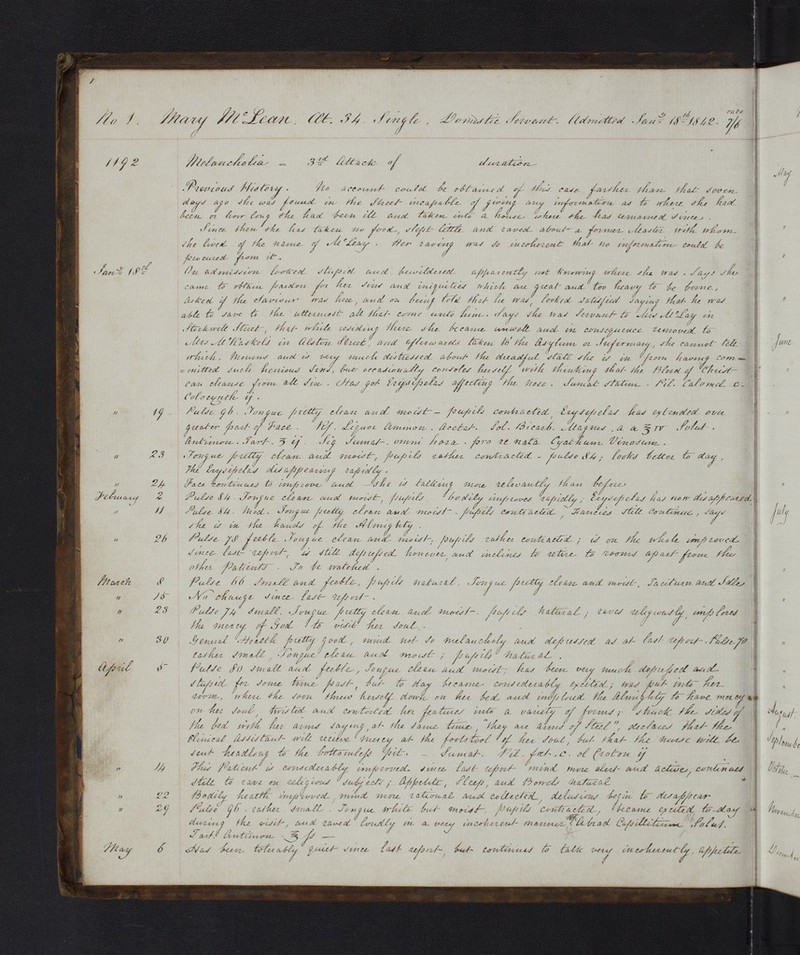 1
No 1. Mary McLean. Æt. 34. Single. Domestic Servant. Admitted Jany 18th 1842. 7/6
1192 Melancholia — 3rd Attack of duration
Previous History. No account could be obtained of this case farther than that seven
days ago she was found in the Street incapable of giving any information as to where she had
been or how long she had been ill and taken into a house where she has remained since.
Since then she has taken no food, slept little and raved about a former Master with whom
she lived of the name of McLeay. Her raving was so incoherent that no information could be
procured from it.
Jany 18th On admission looked stupid and bewildered apparently not knowing where she was. Says she
came to obtain pardon for her sins and iniquities which are great and too heavy to be borne,
asked if the Saviour was here, and on being told that he was, looked satisfied saying that he was
able to save to the uttermost all that come unto him. Says she was Servant to Mrs McLay in
Stockwell Street, that while residing there she became unwell and in consequence removed to
Mrs McKaskels in Alston Street, and afterwards taken to the Asylum or Infirmary, she cannot tell
which. Mourns and is very much distressed about the dreadful state she is in from having com—
mitted such heinous sins, but occasionally consoles herself with thinking that the Blood of Christ
can cleanse from all sin. Has got Erysipelas affecting the nose. Sumat statim. Pil. Calomel. c.
Colocynth ij.
" 19 Pulse 96. Tongue pretty clean and moist — pupils contracted, Erysipelas has extended over
greater part of Face. Liquor Ammon. Acetat. Sol. Bicarb. Magnes. a a ℥iv Solut.
Antimon. Tart. ʒij Sig Sumat. omni hora. pro re nata Cyathum Vinosum.
" 23 Tongue pretty clean and moist, pupils rather contracted — pulse 84; looks better to day.
The Erysipelas disappearing rapidly.
" 24 Face continues to improve and she is talking more relevantly than before
February 2 Pulse 84. Tongue clean and moist, pupils bodily improves rapidly; Erysipelas has now disappeared
" 11 Pulse 84. Mod. Tongue pretty clean and moist — pupils contracted, Fancies still continue, says
she is in the hands of the Almighty.
" 26 Pulse 78 feeble. Tongue clean and moist, pupils rather contracted; is on the whole improved
since last report, is still depressed however and inclines to retire to rooms apart from the
other Patients. To be watched.
March 8 Pulse 66 Small and feeble, pupils natural. Tongue pretty clean and moist. Taciturn and Idle
" 15 No change since last report.
" 23 Pulse 74 small. Tongue pretty clean and moist — pupils natural; raves religiously, implores
the mercy of God to visit her soul.
" 30 General Health pretty good, mind not so melancholy and depressed as at last report. Pulse 70
rather small, Tongue clean and moist; pupils natural.
April 5 Pulse 80 small and feeble, Tongue clean and moist; has been very much depressed and
stupid for some time past, but to day became considerably excited; was put into her
room, when she soon threw herself down on her bed and implored the Almighty to have mercy
on her soul, twisted and contorted her features into a variety of forms; struck the sides of
the bed with her arms saying, at the same time, "they are arms of Steel", declares that the
Clinical Assistant will receive mercy at the footstool of her soul, but that the nurse will be
sent headlong to the bottomless pit. — Sumat. Pil. c. ol Croton ij
" 14 This Patient is considerably improved since last report mind more alert and active, continues
still to rave on religious subjects; Appetite, Sleep, and Bowels natural
" 22 Bodily health improved, mind more rational and collected, delusions begin to disappear
" 29 Pulse 96. rather small. Tongue white but moist, pupils contracted, became excited to-day
during the visit, and raved loudly in a very incoherent manner. Abrad Capillitium Solut.
Tart. Antimon. ℥ss —
May 6 Has been tolerably quiet since last report, but continues to talk very incoherently. Appetite
May
June
July
August
Septembe
October
November
December